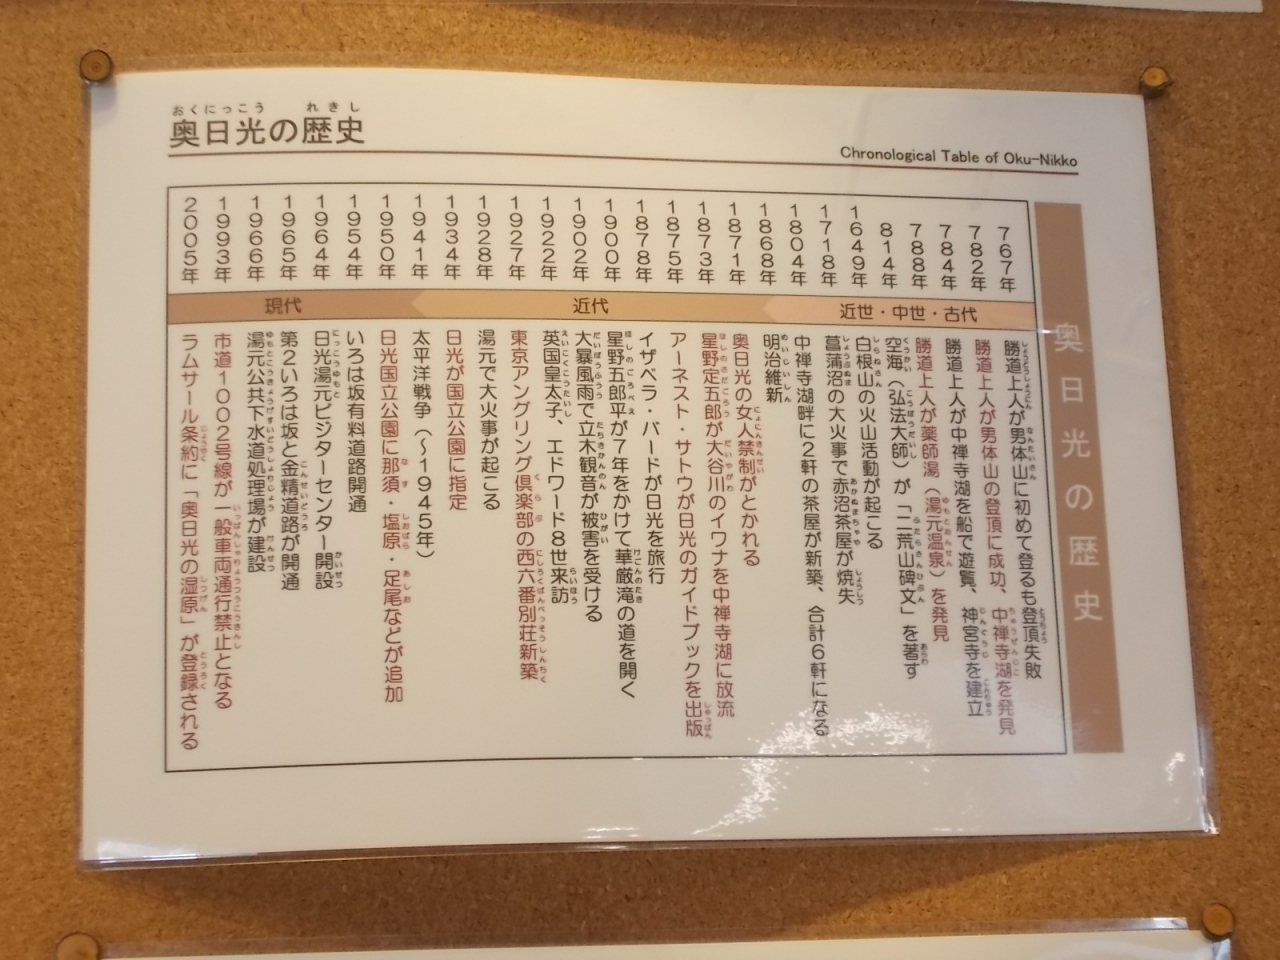 おくにっこう れきし
奥日光の歴史
Chronological Table of Oku-Nikko
奥日光の歴史
近世・中世・古代
767年 勝道上人が男体山に初めて登るも登頂失敗
782年 勝道上人が男体山の登頂に成功、中禅寺湖を発見
784年 勝道上人が中禅寺湖を船で遊覧、神宮寺を建立
788年 勝道上人が薬師湯（湯元温泉）を発見
814年 空海（弘法大師）が「二荒山碑文」を著す
1649年 白根山の火山活動が起こる
1718年 菖蒲沼の大火事で赤沼茶屋が焼失
1804年 中禅寺湖畔に2軒の茶屋が新築、合計6軒になる
近代
1868年 明治維新
1871年 奥日光の女人禁制がとかれる
1873年 星野定五郎が大谷川のイワナを中禅寺湖に放流
1875年 アーネスト・サトウが日光のガイドブックを出版
1878年 イザベラ・バードが日光を旅行
1900年 星野五郎平が7年をかけて華厳滝の道を開く
1902年 大暴風雨で立木観音が被害を受ける
1922年 英国皇太子、エドワード8世来訪
1927年 東京アングリング倶楽部の西六番別荘新築
1928年 湯元で大火事が起こる
1934年 日光が国立公園に指定
1941年 太平洋戦争（～1945年）
現代
1950年 日光国立公園に那須・塩原・足尾などが追加
1954年 いろは坂有料道路開通
1964年 日光湯元ビジターセンター開設
1965年 第2いろは坂と金精道路が開通
1966年 湯元公共下水道処理場が建設
1993年 市道1002号線が一般車両通行禁止となる
2005年 ラムサール条約に「奥日光の湿原」が登録される